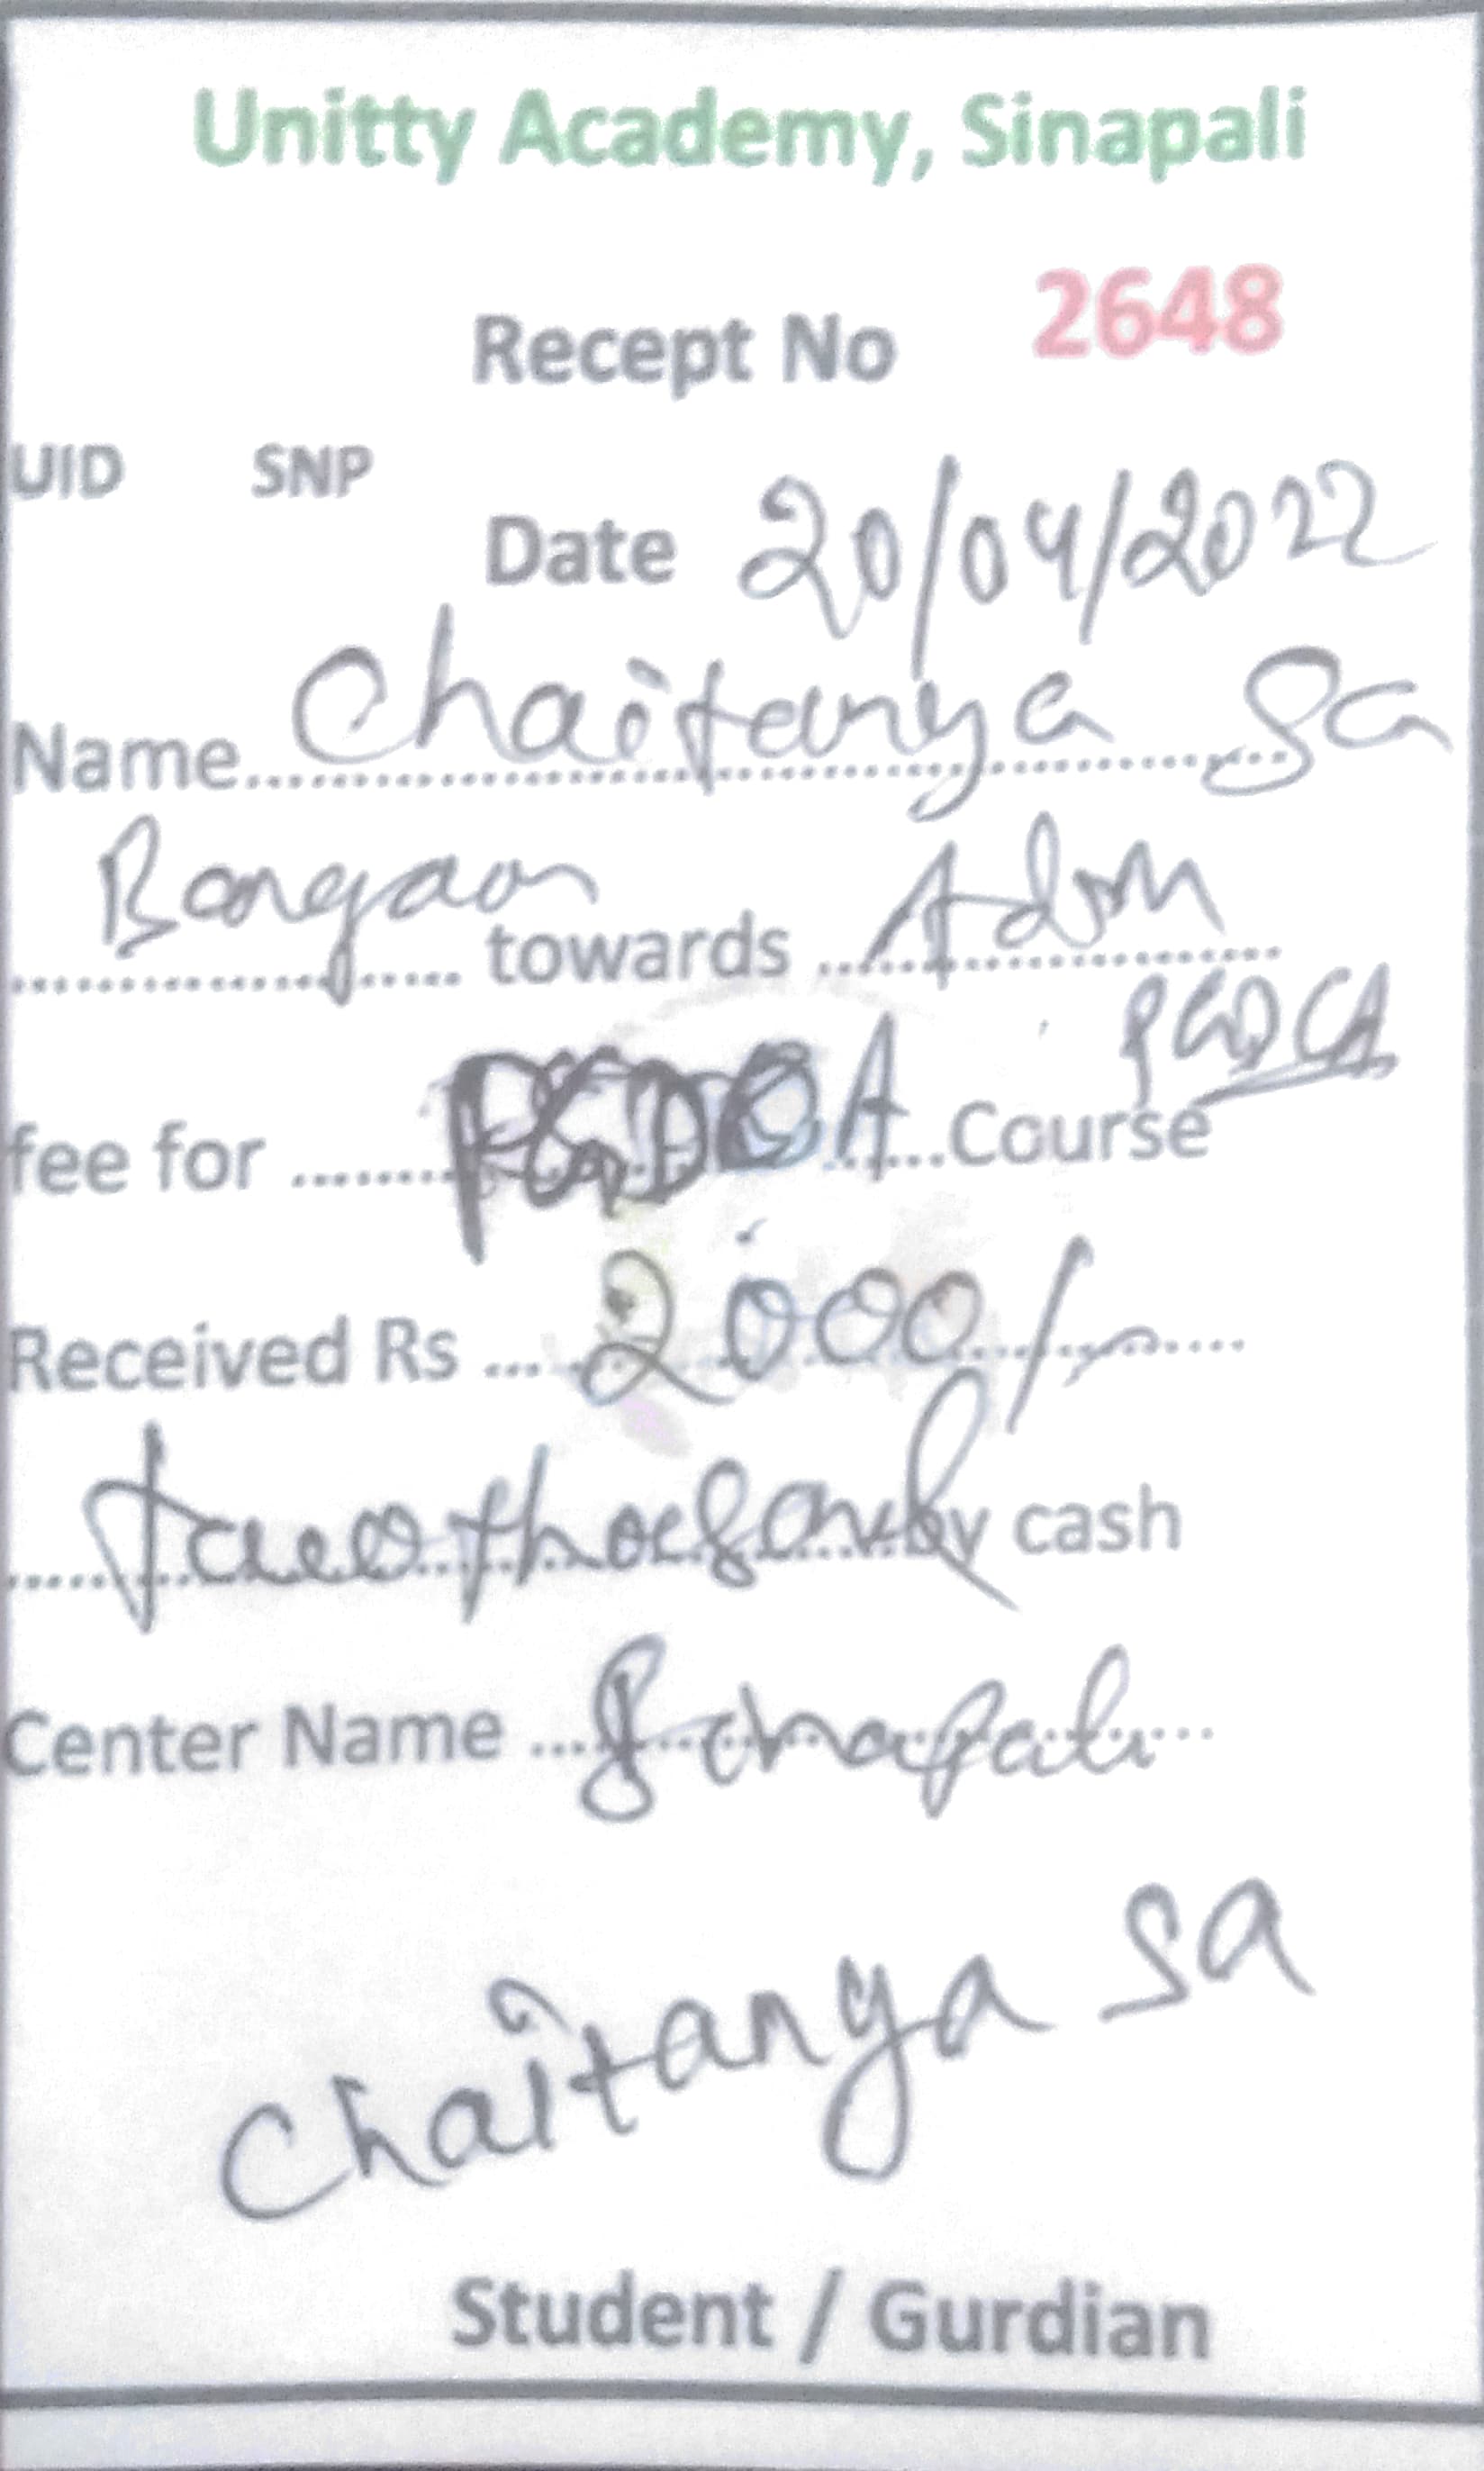 Unitty Academy, Sinapali
Recept No 2648
UID SNP
Date 20/04/2022
Name Chaitanya Sa
Bangaon towards Adm
PGDCA
fee for PGDCA Course
Received Rs 2000/-
Two thousand by cash
Center Name Sinapali
Chaitanya Sa
Student / Gurdian